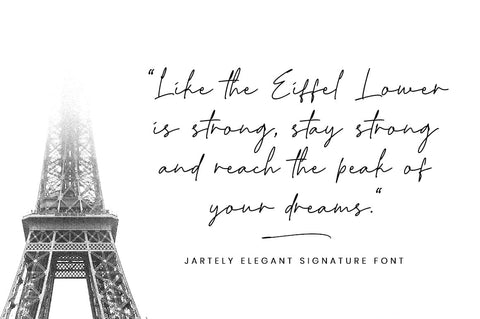 “Like the Eiffel Lower
is strong, stay strong
and reach the peak of
your dreams.“
JARTELY ELEGANT SIGNATURE FONT